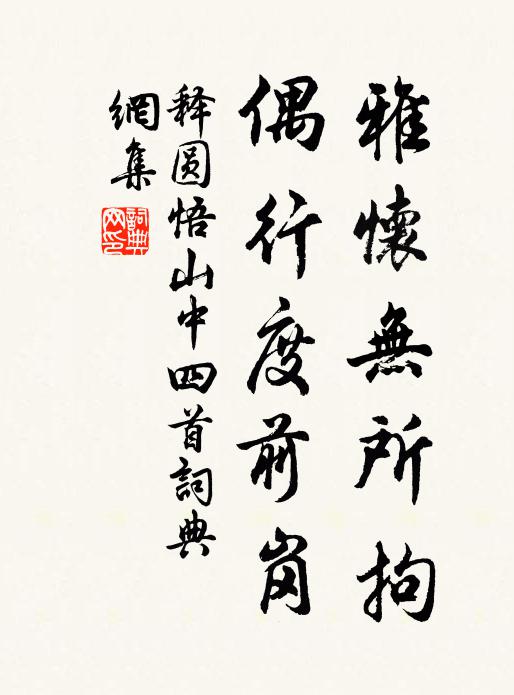 雅懷無所拘
偶行度前崗
释圆悟山中四首詞典
網集
詞典
网印